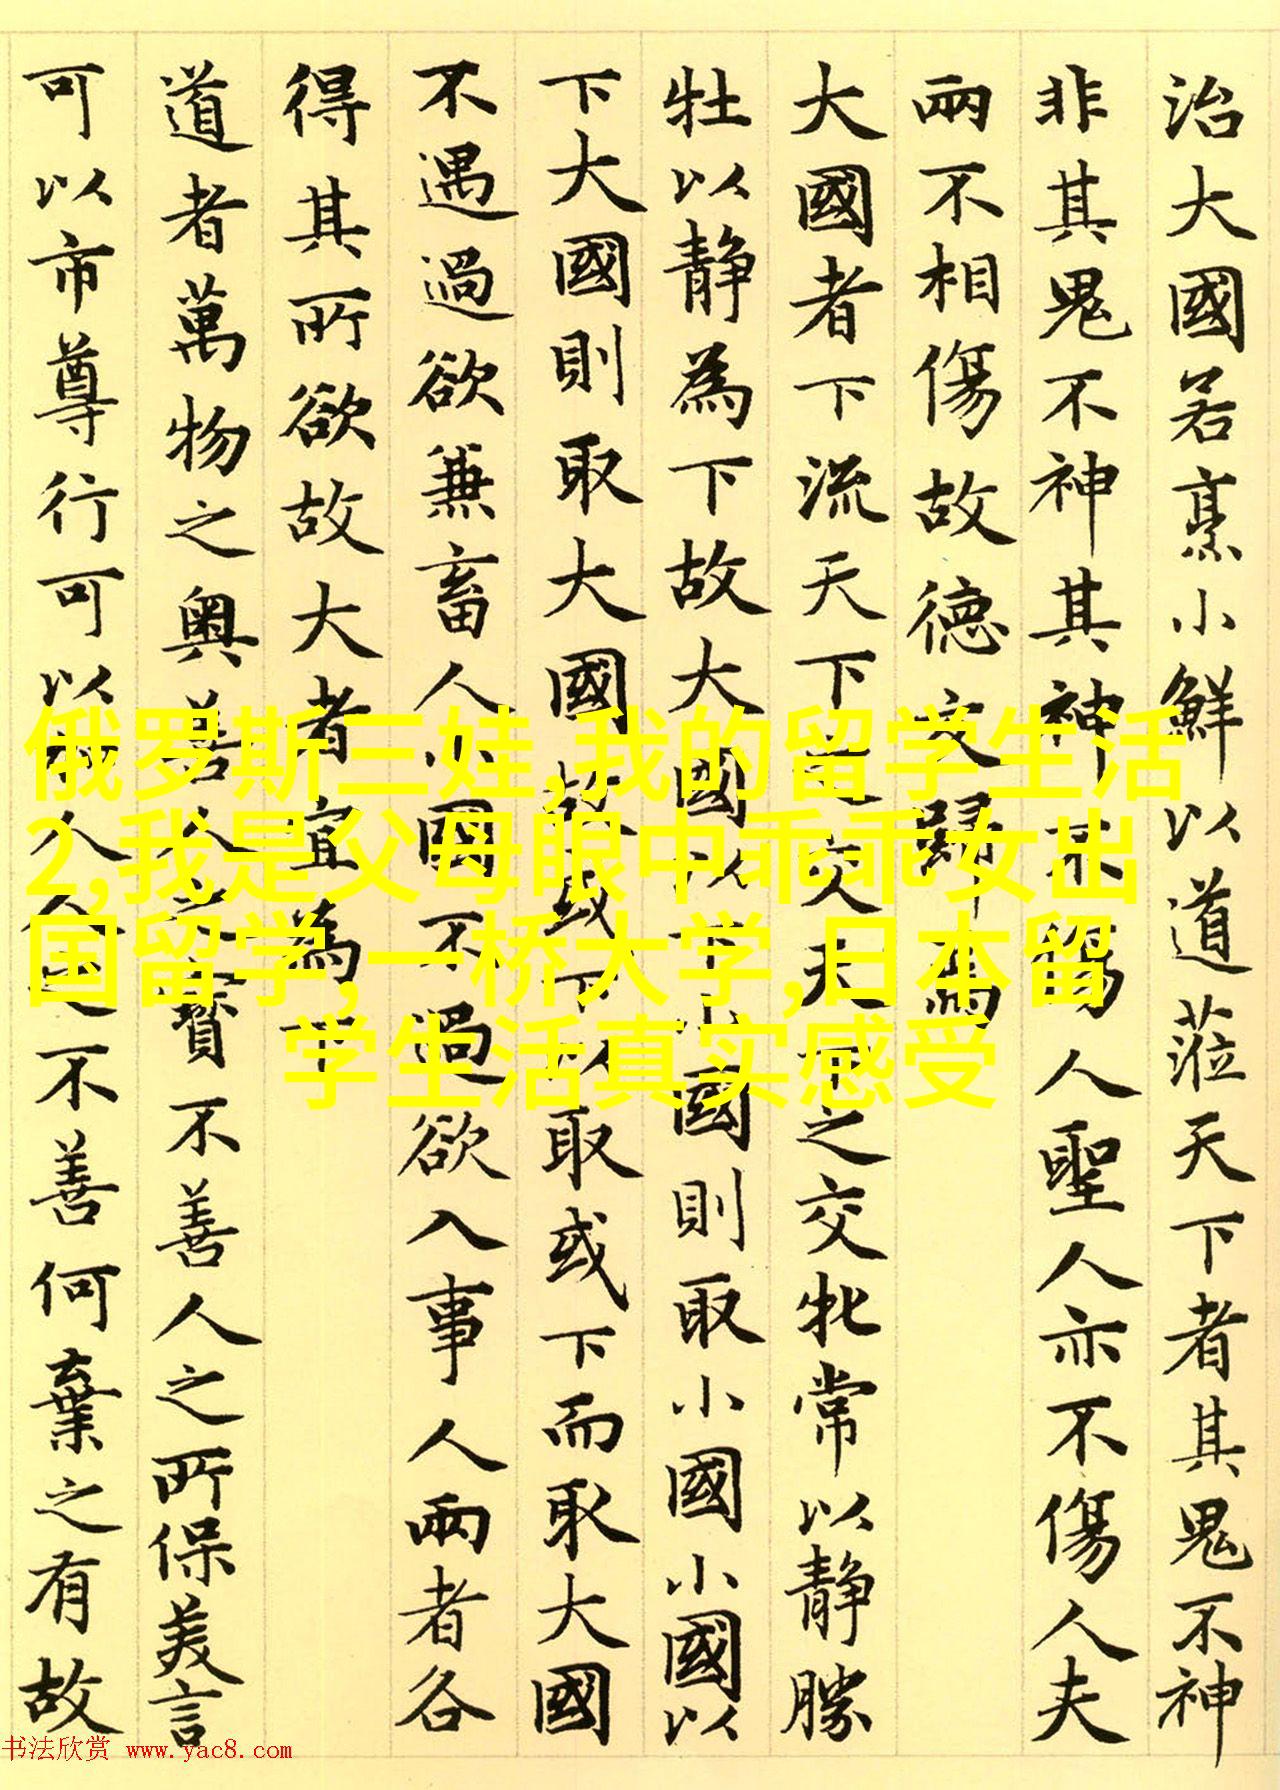 治大國若烹小鮮以道蒞天下者其鬼不神
非其鬼不神其神不傷人聖人亦不傷人夫
兩不相傷故德交歸焉
大國者下流天下之交天下之交牝常以静勝
牡以静為下故大國以下小國則取小國小國以
下大國則取大國故或下以取或下而取大國
不遇過欲兼畜人小國不過欲入事人兩者各
得其所欲故大者宜為下
道者萬物之奥善人之寳不善人之所保美言
可以市尊行可以加人人之不善何棄之有故
俄罗斯三娃,我的留学生活
2,我是父母眼中乖乖女出
国留学,一桥大学,日本留
学生活真实感受
书法欣赏 www.yac8.com